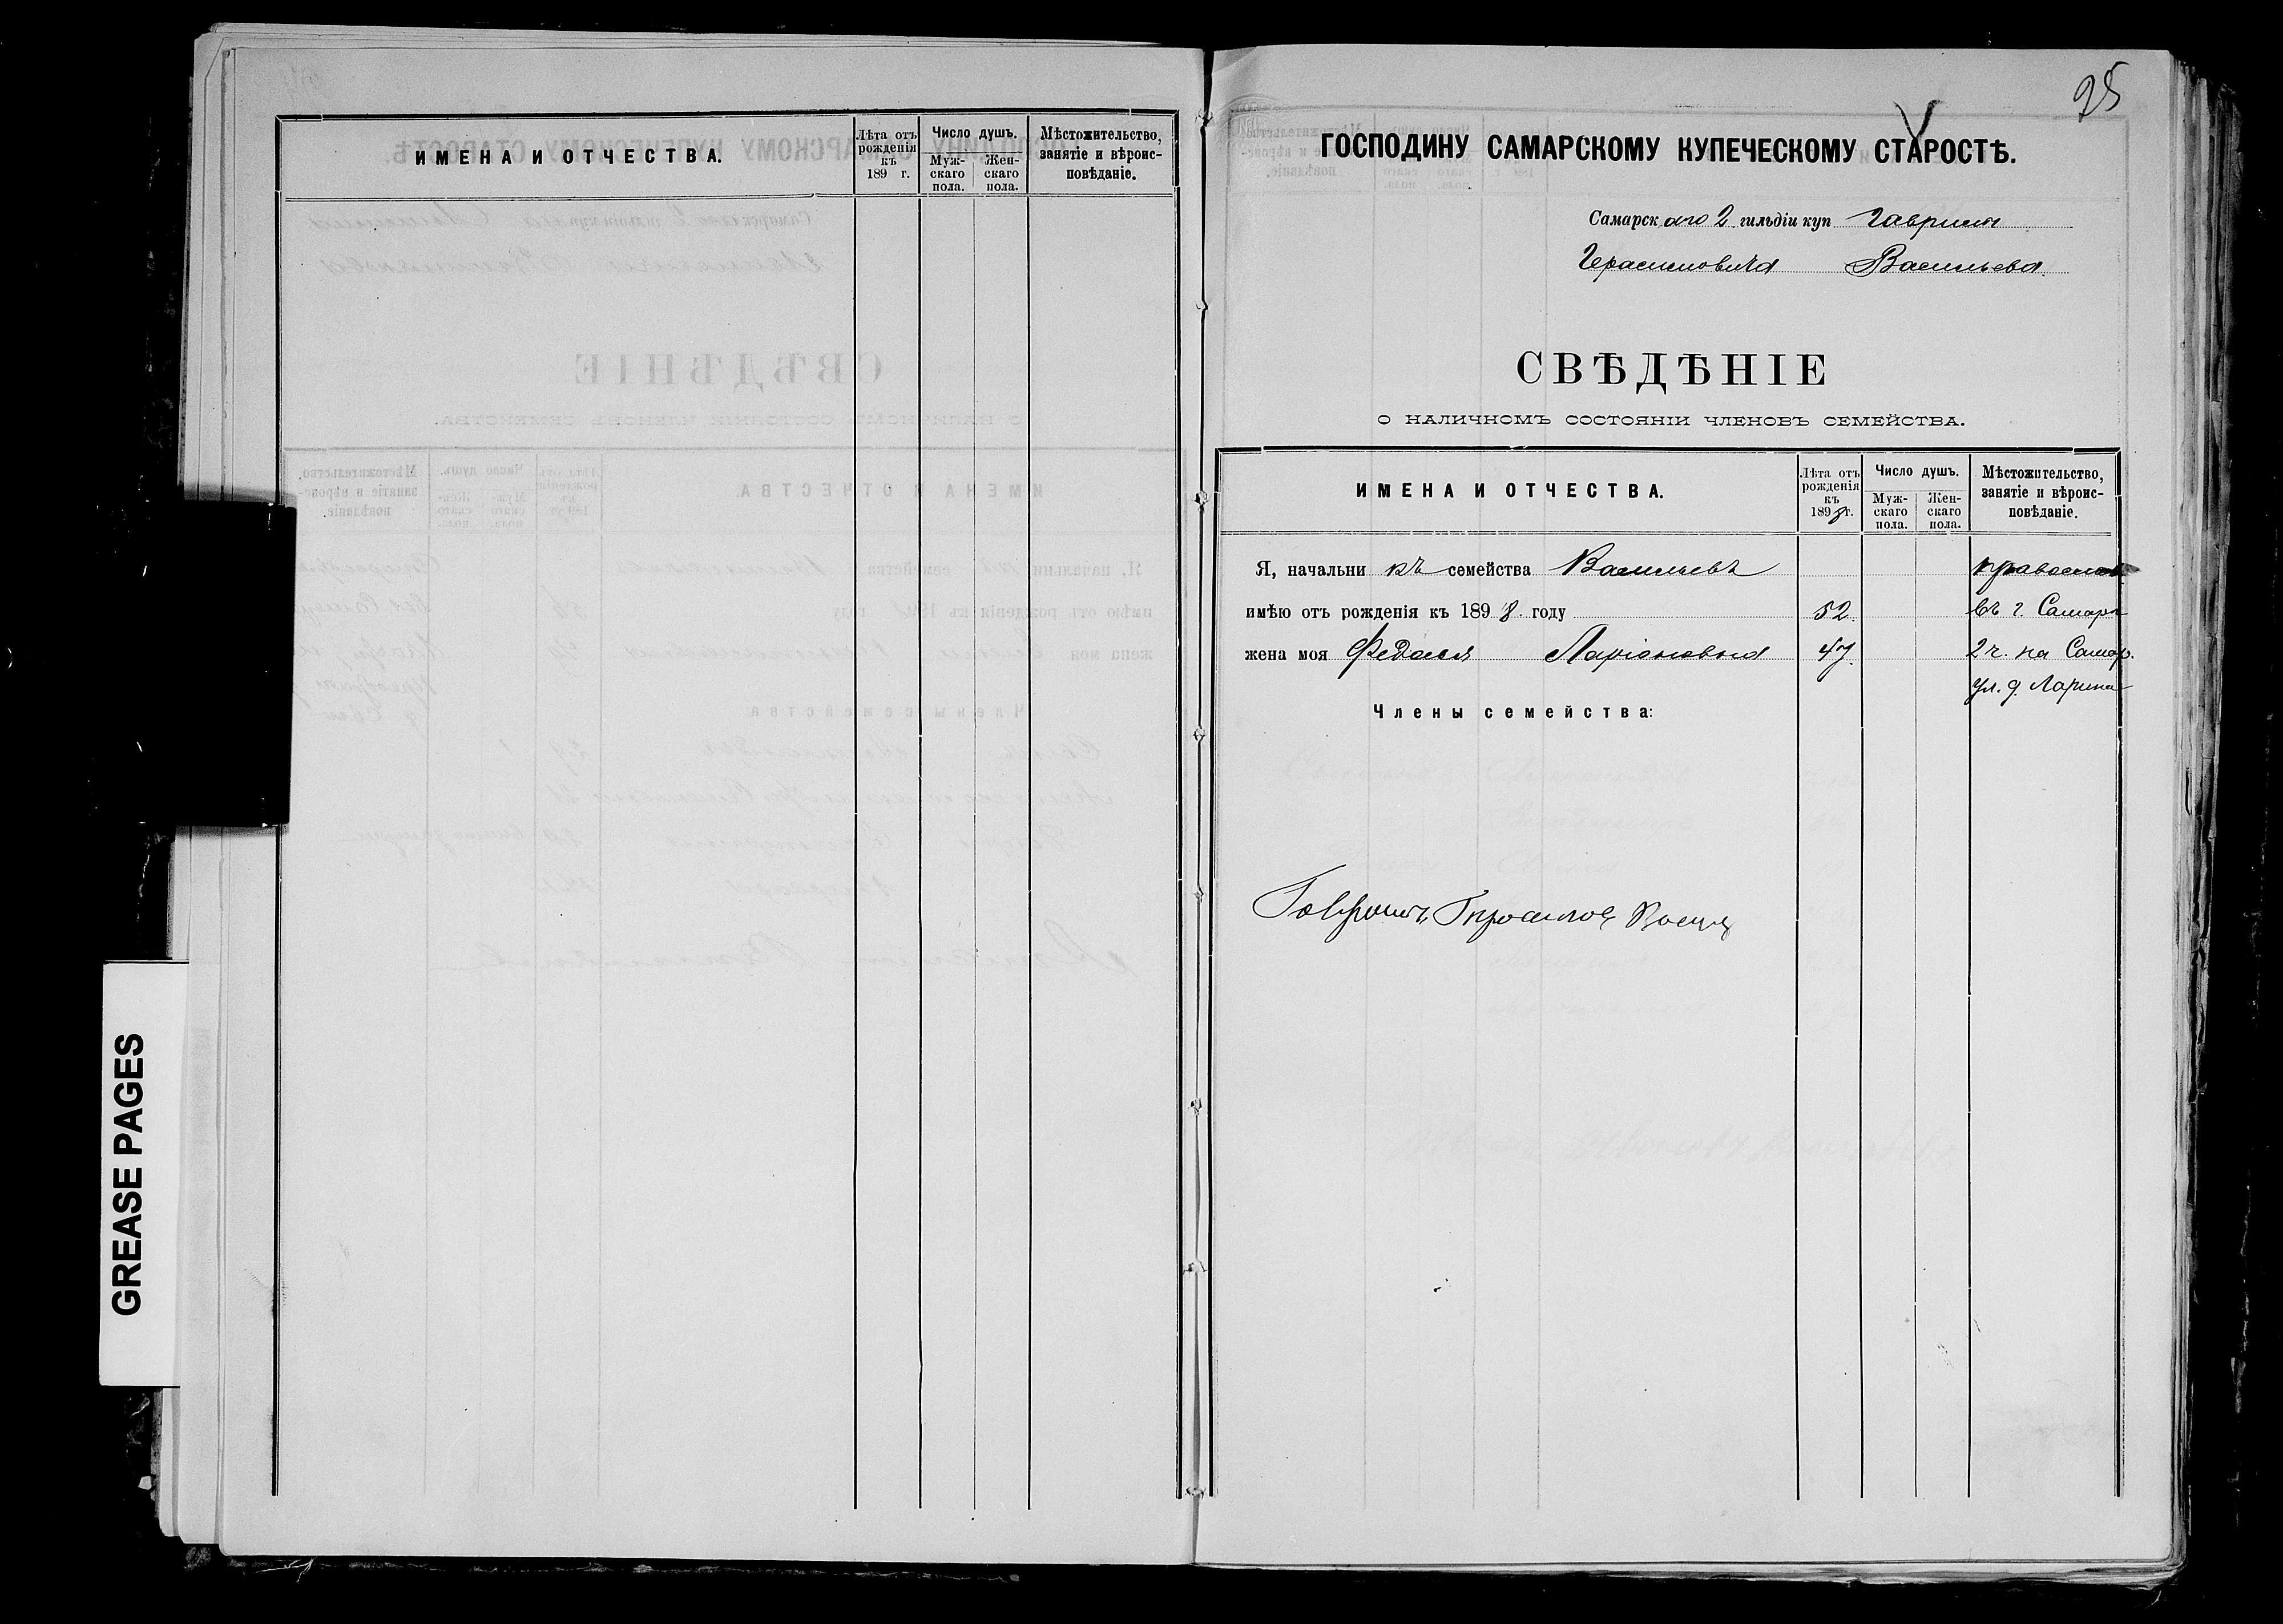 ИМЕНА И ОТЧЕСТВА.
Лѣта отъ рожденія къ 189 г.
Число душъ.
Муж-скаго пола.
Жен-скаго пола.
Мѣстожительство, занятіе и вѣроис-повѣданіе.
GREASE PAGES
25
ГОСПОДИНУ САМАРСКОМУ КУПЕЧЕСКОМУ СТАРОСТѢ.
Самарск аго 2 гильдіи куп Гавріила
Герасимовича Васильева
СВѢДѢНІЕ
О НАЛИЧНОМЪ СОСТОЯНІИ ЧЛЕНОВЪ СЕМЕЙСТВА.
ИМЕНА И ОТЧЕСТВА.
Лѣта отъ рожденія къ 1898 г.
Число душъ.
Муж-скаго пола.
Жен-скаго пола.
Мѣстожительство, занятіе и вѣроис-повѣданіе.
Я, начальни къ семейства Васильевъ
имѣю отъ рожденія къ 189 8. году 52. въ г. Самарѣ
жена моя Ларіоновна 47 2 ч. на Самар.
ул. д. Ларина
Члены семейства: